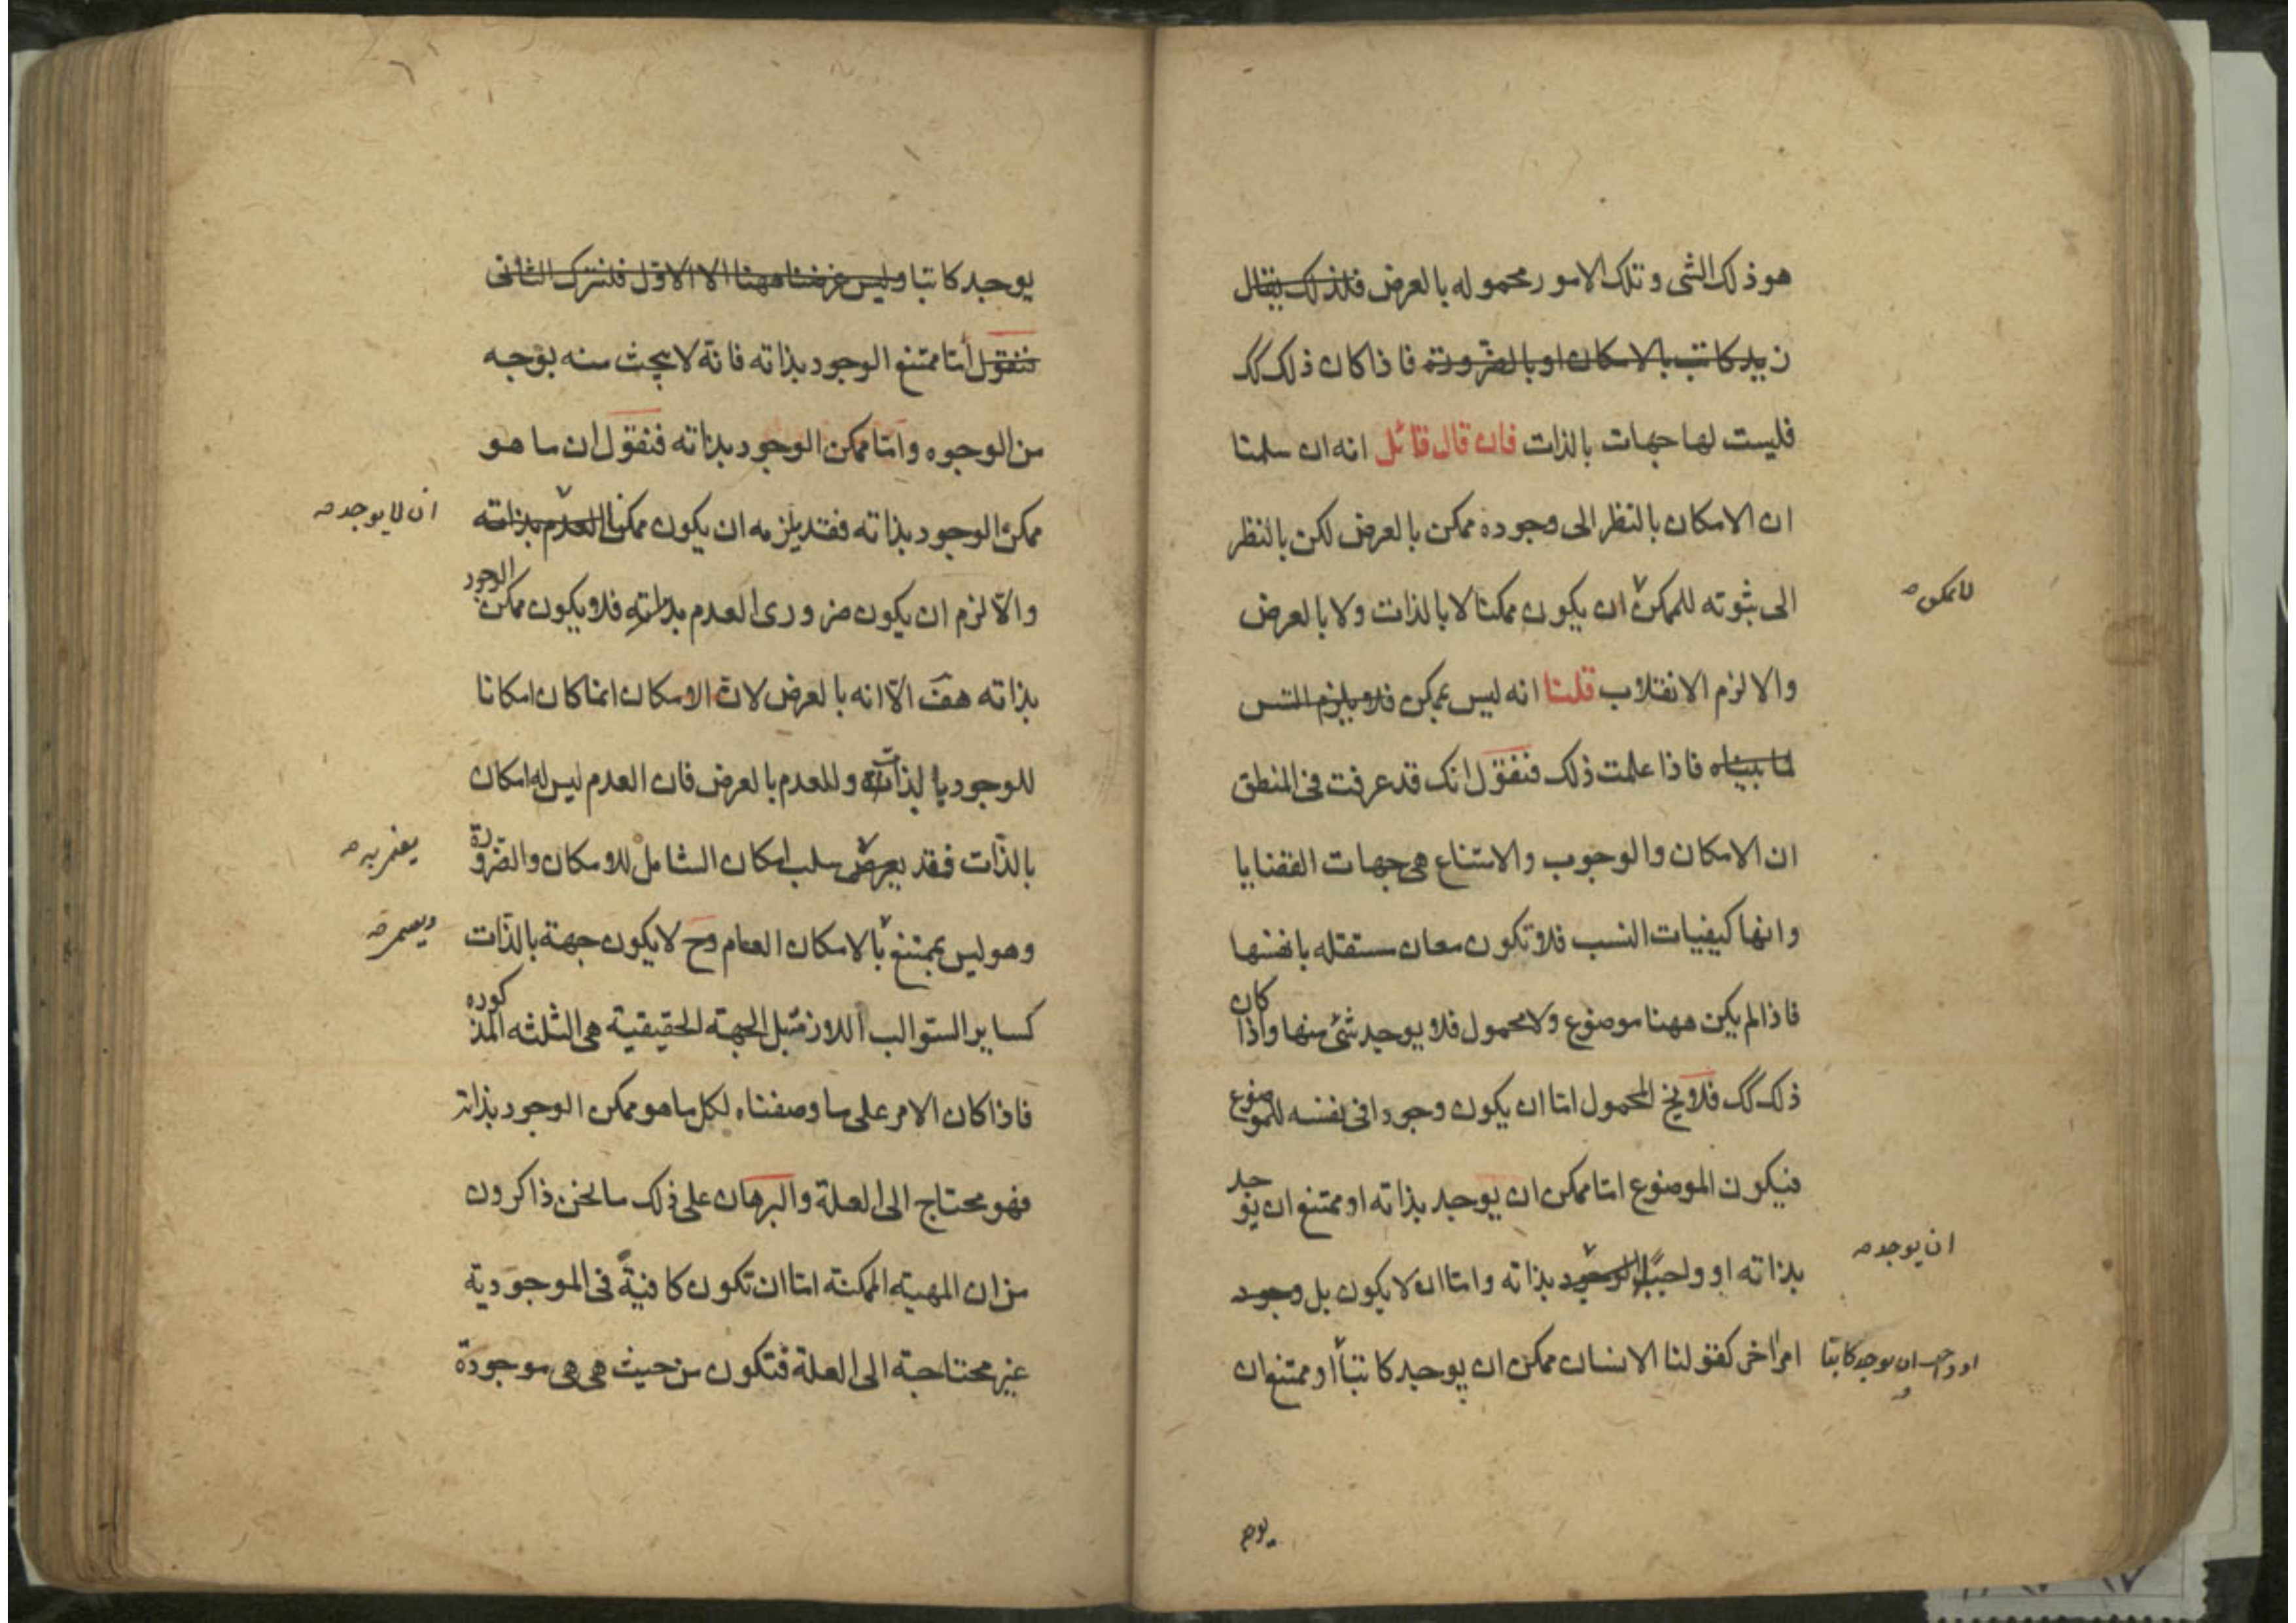 هو ذلك الشی وتلك الامور محموله بالعرض فلذلك یقال
زید کاتب بالامکان او بالضرورة فاذا کان ذلک کک
فلیست لها جهات بالذات فان قال قائل انه ان سلمنا
ان الامکان بالنظر الی وجوده ممکن بالعرض لکن بالنظر
الی ثبوته للممکن ان یکون ممکنا لا بالذات ولا بالعرض
للممکن
والا لزم الانقلاب قلنا انه لیس بممکن فلا یلزم التس
لما بیناه فاذا علمت ذلک فنقول انک قد عرفت فی المنطق
ان الامکان والوجوب والامتناع هی جهات القضایا
وانها کیفیات النسب فلا تکون معان مستقله بانفسها
فاذا لم یکن ههنا موضوع ولا محمول فلا یوجد شئ منها واذا کان
ذلک کک فلا یخ المحمول اما ان یکون وجودا فی نفسه للموضوع
فیکون الموضوع اما ممکن ان یوجد بذاته او ممتنع ان یوجد
بذاته او واجب الوجود بذاته واما ان لا یکون بل وجود
ان یوجد
امر اخر کقولنا الانسان ممکن ان یوجد کاتبا او ممتنع ان
او واجب ان یوجد کاتبا
یوجد
یوجد کاتبا ولیس غرضنا ههنا الا الاول فلنترک الثانی
فنقول اما ممتنع الوجود بذاته فانه لا یبحث عنه بوجه
من الوجوه واما ممکن الوجود بذاته فنقول ان ما هو
ممکن الوجود بذاته فقد یلزمه ان یکون ممکنا العدم بذاته
ان لا یوجد
والا لزم ان یکون ضروری العدم بذاته فلا یکون ممکن الوجود
بذاته هف الا انه بالعرض لان الامکان انما کان امکانا
للوجود بالذات وللعدم بالعرض فان العدم لیس له امکان
بالذات فقد یعرض سلب امکان الشامل للامکان والضرورة
وهو لیس بممتنع بالامکان العام وح لا یکون جهة بالذات
کسایر السوالب اللاز قبل الجهة الحقیقیة هی الثلثه المذکوره
فاذا کان الامر علی ما وصفناه لکل ما هو ممکن الوجود بذاته
فهو محتاج الی العلة والبرهان علی ذلک ما نحن ذاکرون
من ان المهیة الممکنة اما ان تکون کافیة فی الموجودیة
غیر محتاجة الی العلة فتکون من حیث هی هی موجودة